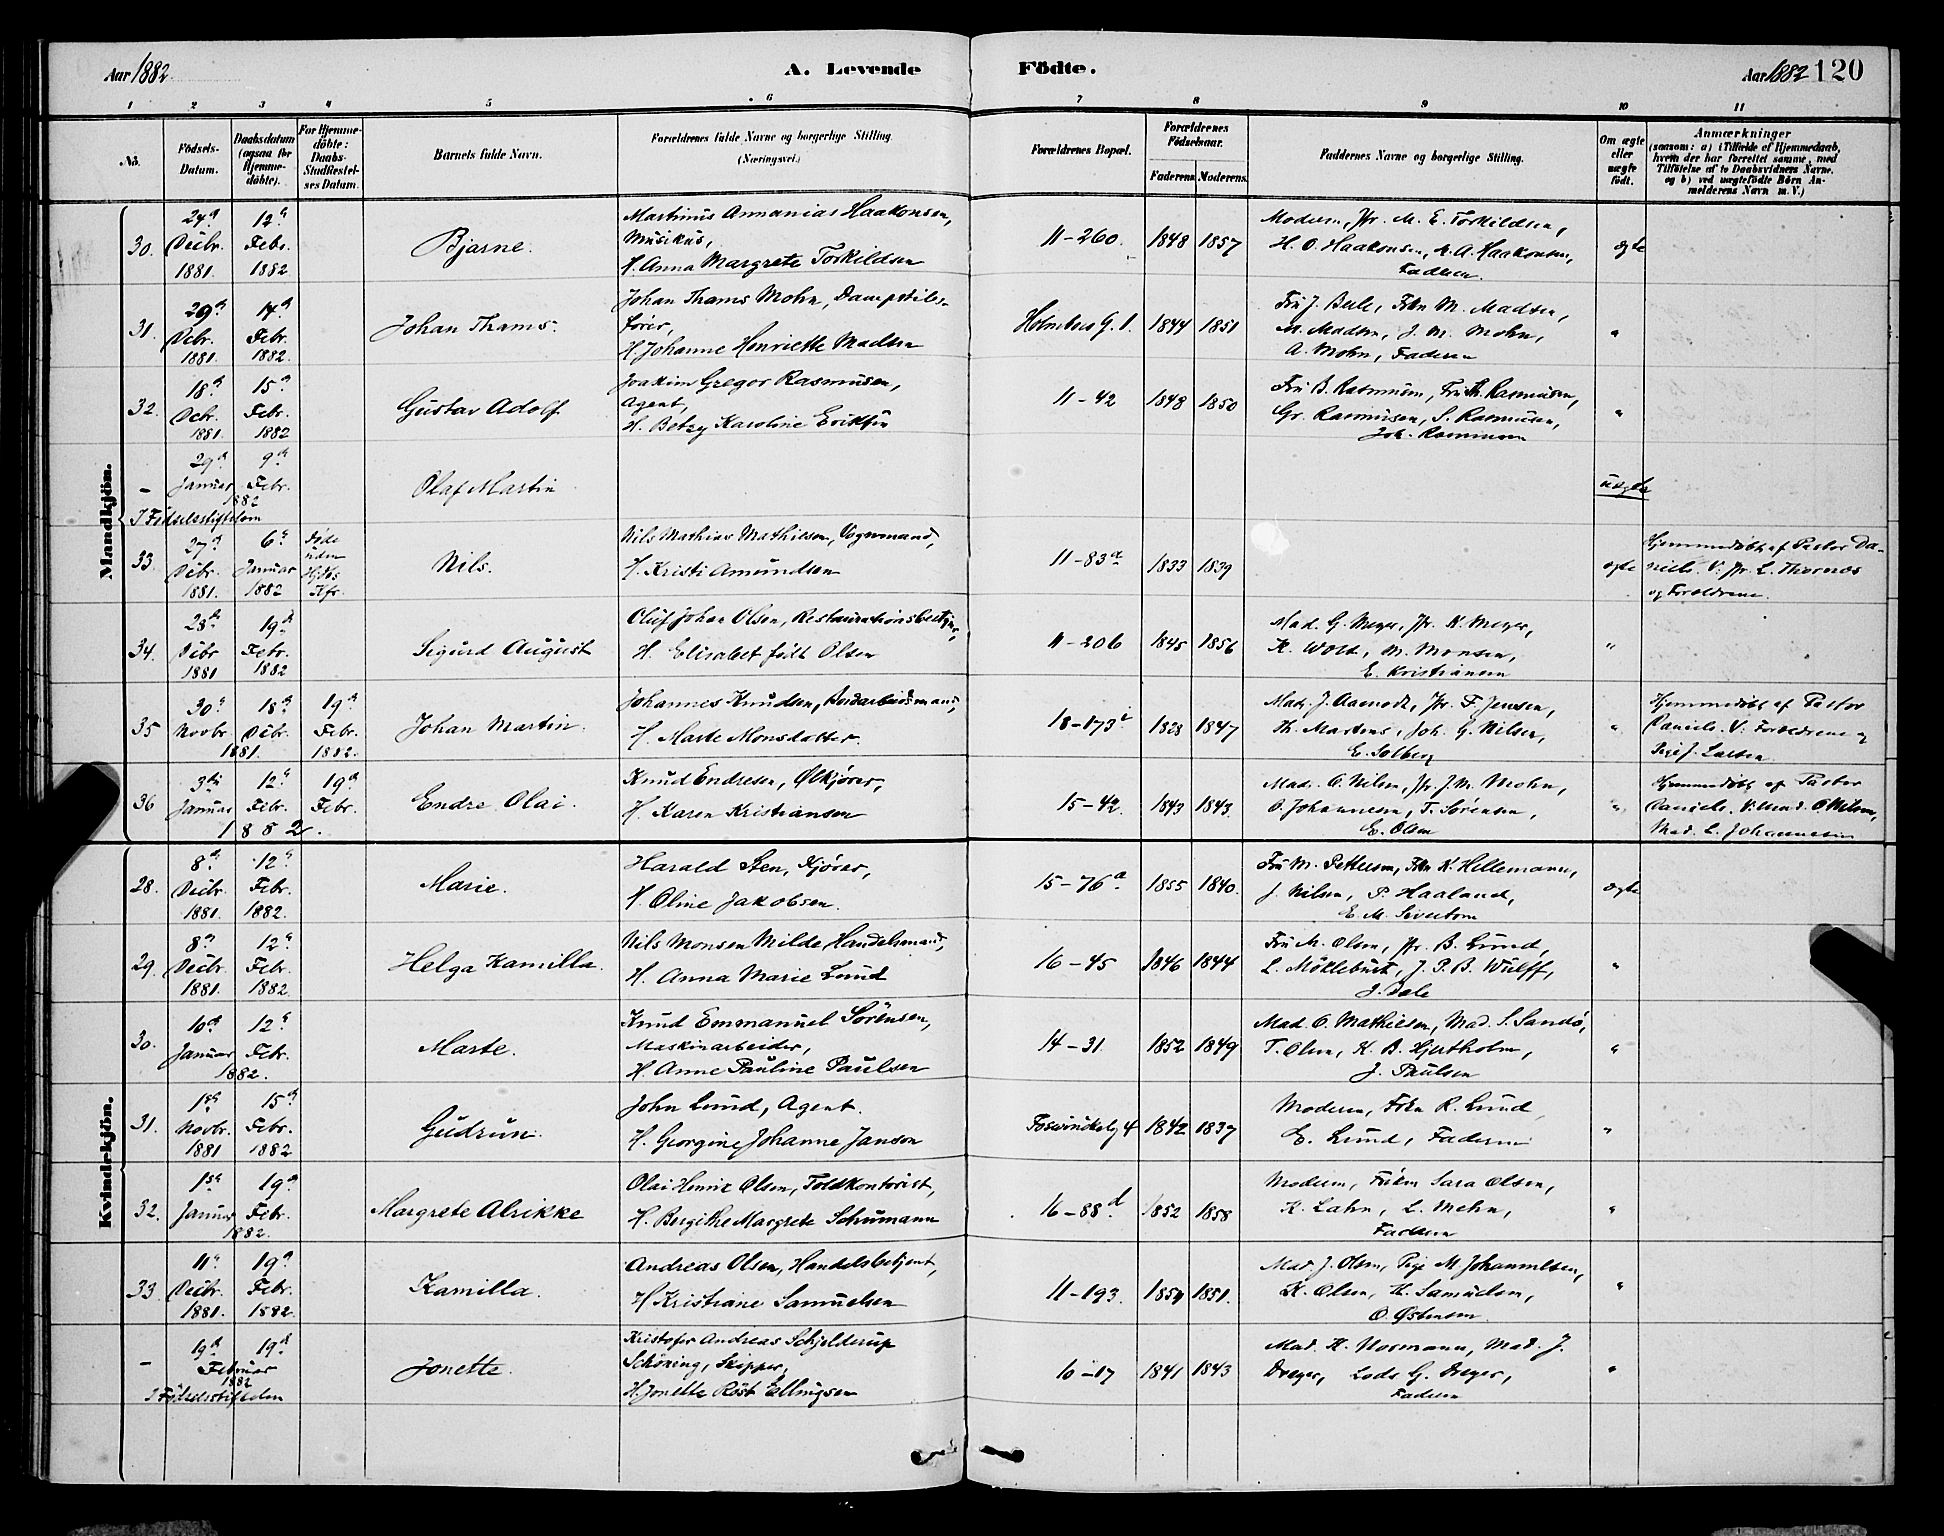 Aar 1882.
A. Levende Födte.
Aar 1882 120
1 2 3 4 5 6 7 8 9 10 11
No.
Födsels-Datum.
Daabsdatum (ogsaa for Hjemme-döbte).
For Hjemme-döbte: Daabs-Stadfæstel-ses Datum.
Barnets fulde Navn.
Forældrenes fulde Navne og borgerlige Stilling. (Næringsvei.)
Forældrenes Bopæl.
Forældrenes Födselsaar.
Faderens Moderens.
Faddernes Navne og borgerlige Stilling.
Om ægte eller uægte födt.
Anmærkninger
(saasom: a) i Tilfælde af Hjemmedaab,
hvem der har forrettet samme, med
Tilföielse af to Daabsvidners Navne.
og b) ved uægtefödte Börn An-
melderens Navn m. V.)
Mandkjön.
30.
24d Decbr. 1881
12te Febr. 1882
Bjarne.
Martinus Annanias Haakonsen,
Musikus,
H. Anna Margrete Torkildsen
11-260.
1848 1857
Moderen, Jfr. M. E. Torkildsen,
H. O. Haakonsen, A. A. Haakonsen,
Faderen.
ægte
31.
29d Decbr. 1881.
14d Febr. 1882.
Johan Thams.
Johan Thams Mohn, Dampskibs-
fører,
H. Johanne Henriette Madsen
1844 1851
M. Madsen, J. M. Mohn,
A. Mohn, Faderen
"
32.
18d Decbr. 1881.
15d Febr. 1882
Gustav Adolf
Joakim Gregor Rasmusen,
Agent,
H. Betzy Karoline Eriksen
11-42
1848 1850
Fru B. Rasmusen, Fru Th. Rasmusen,
Gr. Rasmusen, S. Rasmusen,
Joh. Rasmusen
"
-
29d Januar
9d Febr.
1882
I Fødselsstiftelsen
Olaf Martin
uægte
33.
27d Decbr. 1881.
6te Januar 1882
Nils.
Nils Mathias Mathiesen, Vognmand,
H. Kristi Amundsen
11-83a
1833 1839
ægte
Hjemmedøbt af Pastor Da-
niels. V: Jfr. L. Thornæs
og Forældrene.
34.
23d Decbr 1881
19d Febr. 1882
Sigurd August
Oluf Johan Olsen, Restaurationsbestyrer,
H. Elisabet født Olsen
11-206
1845 1856
Mad. G. Meyer, Jfr. K. Meyer,
K. Wold, M. Monsen,
E. Kristiansen
"
35
30te Novbr.
18d Decbr.
1881.
19d Febr. 1882.
Johan Martin.
Johannes Knudsen, Jordarbeidsmand,
H. Marte Monsdatter.
18-173i
1828 1847
Mad. J. Aamodt, Jfr. F. Jensen,
Th. Martens, Joh. G. Nilsen,
E. Solberg
"
Hjemmedøbt af Pastor
Daniels. V: Forældrene og
Pige J. Larsen
36
3die Januar
12te Febr.
19d Febr.
1882.
Endre Olai.
Knud Endresen, Ølkjører,
H. Karen Kristiansen
15-42.
1843 1843.
Mad. O. Nilsen, Jfr. J. M. Mohn,
O. Johannesen, T. Sørensen,
E. Olsen
"
Hjemmedøbt af Pastor
Daniels. V: Mad. O. Nilsen,
Mad. L. Johannesen
Kvindekjön.
28.
8d Decbr. 1881.
12te Febr. 1882.
Marie.
Harald Sten, Kjører,
H. Oline Jakobsen.
15-76a
1855 1840.
Fru M. Pettersen, Frkn K. Hellemann,
J. Nilsen, P. Haaland,
E. M. Sivertsen
ægte
29.
8d Decbr. 1881.
12te Febr. 1882.
Helga Kamilla.
Nils Monsen Milde, Handelsmand,
H. Anna Marie Lund
16-45
1846 1844
Fru M. Olsen, Jfr. B. Lund,
L. Möklebust, J. P. B. Wulff,
J. Dale
"
30.
10d Januar
12te Febr.
1882.
Marte.
Knud Emmanuel Sörensen,
Maskinarbeider,
H. Anne Pauline Paulsen
14-31
1852 1849
Mad. O. Mathiesen, Mad. S. Sandö,
T. Olsen, K. B. Hjertholm,
J. Paulsen
"
31.
1ste Novbr. 1881
15d Febr. 1882
Gudrun.
John Lund, Agent.
H. Georgine Johanne Janson
1842 1837
Moderen, Frkn R. Lund
E. Lund, Faderen
"
32.
1ste Januar
19d Febr.
1882.
Margrete Alrikke
Olai Henrik Olsen, Toldkontorist,
H. Bergithe Margrete Schumann
16-88d
1852 1858
Moderen, Frkn Sara Olsen,
K. Lahn, L. Mehn,
Faderen
"
33
11te Decbr. 1881.
19d Febr. 1882.
Kamilla.
Andreas Olsen, Handelsbetjent,
H. Kristiane Samuelsen
11-193.
1854 1851.
Mad. J. Olsen, Pige M. Johannesen,
K. Olsen, H. Samuelsen,
O. Østensen.
"
-
19d 19d
Februar
1882
I Fødselsstiftelsen
Jonette.
Kristofer Andreas Schjelderup
Schöning, Skipper,
H. Jonette Röst Ellingsen
10-17
1841 1843
Mad. K. Normann, Mad. J.
Dreyer, Lods G. Dreyer,
Faderen
"